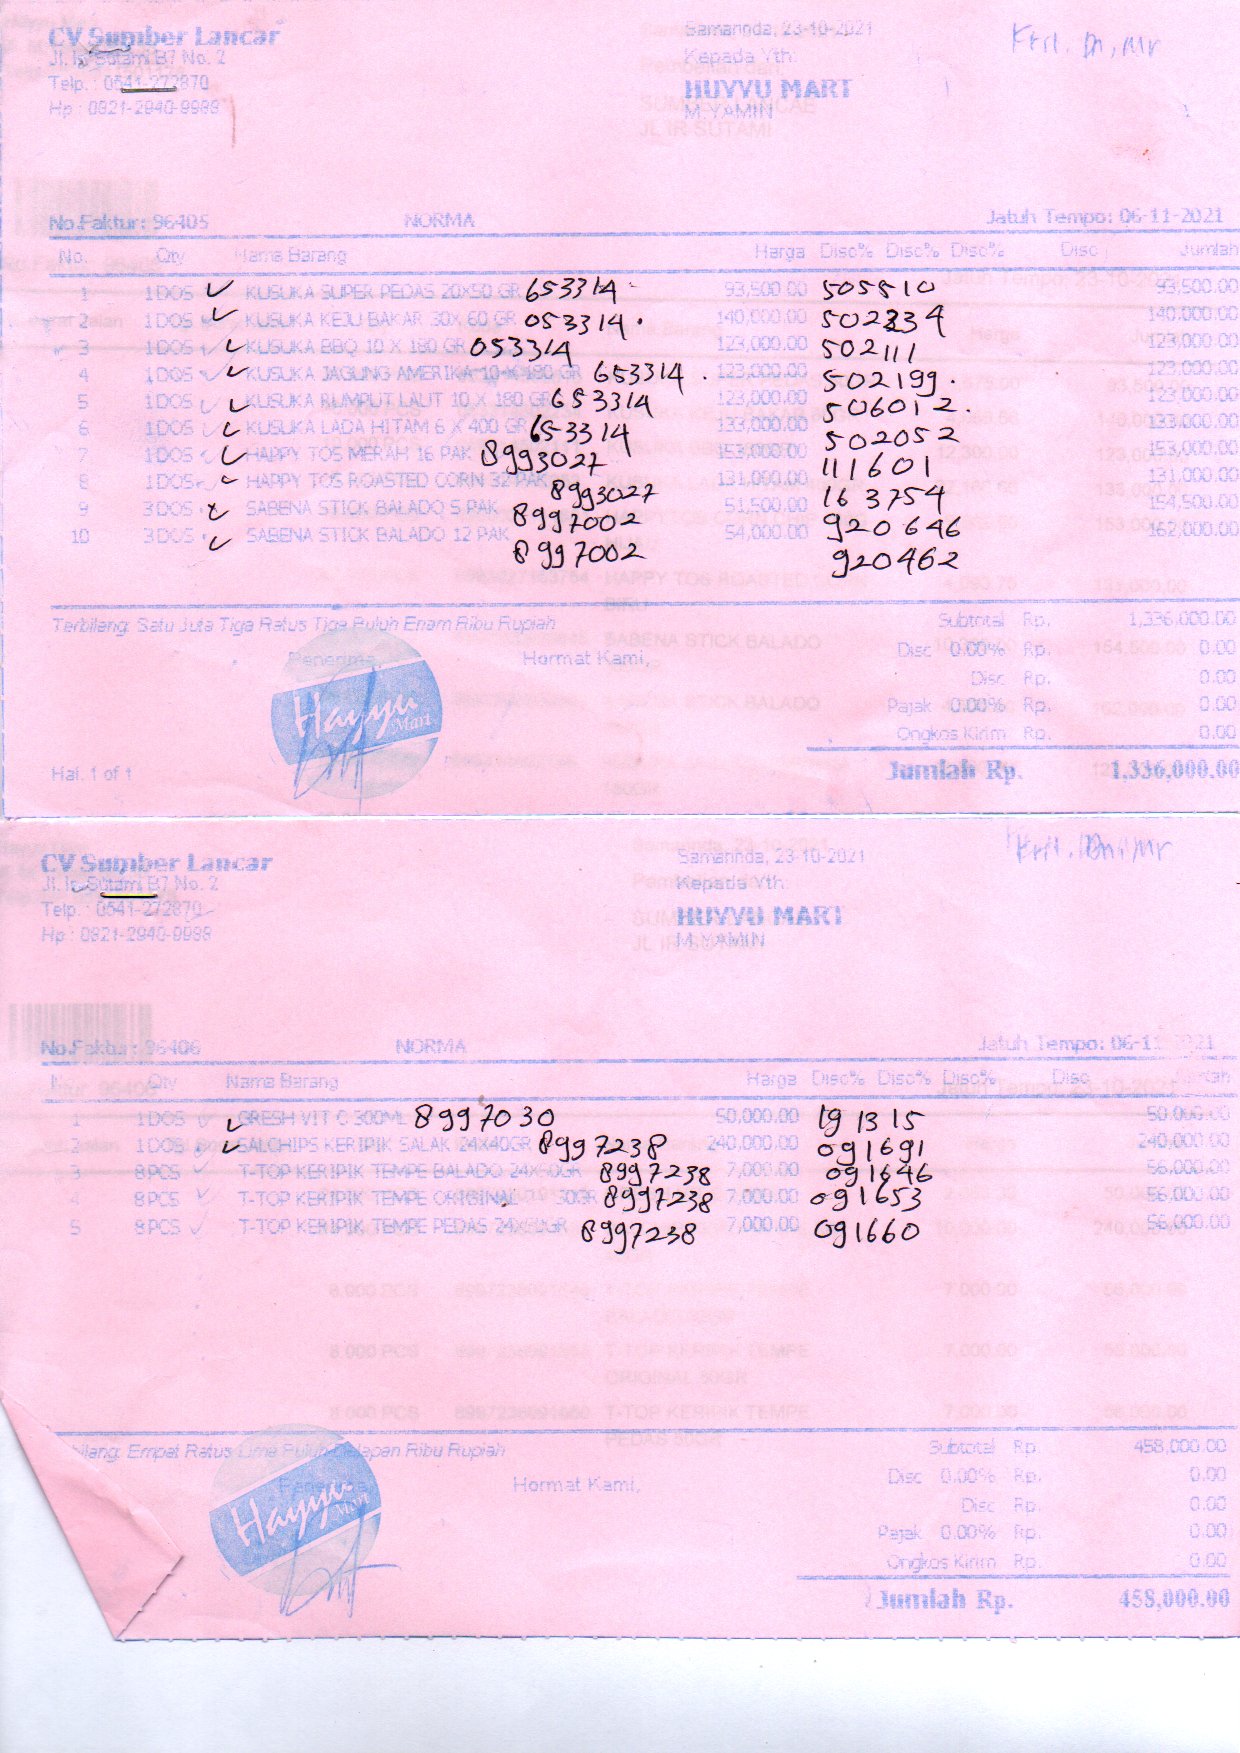 CV Sumber Lancar
Jl. Ir. Sutami B7 No. 2
Telp. : 0541-272870
Hp : 0821-2940-9988
Samarinda, 23-10-2021
Kepada Yth:
HUYYU MART
M.YAMIN
No.Faktur: 96405 NORMA Jatuh Tempo: 06-11-2021
No. Qty Nama Barang Harga Disc% Disc% Disc% Disc Jumlah
1 1 DOS ✓ KUSUKA SUPER PEDAS 20X50 GR 653314 93,500.00 505510 93,500.00
2 1 DOS ✓ KUSUKA KEJU BAKAR 30X 60 GR 053314 140,000.00 502234 140,000.00
3 1 DOS ✓ KUSUKA BBQ 10 X 180 GR 053314 123,000.00 502111 123,000.00
4 1 DOS ✓ KUSUKA JAGUNG AMERIKA 10 X 180 GR 653314 123,000.00 502199 123,000.00
5 1 DOS ✓ KUSUKA RUMPUT LAUT 10 X 180 GR 653314 123,000.00 506012 123,000.00
6 1 DOS ✓ KUSUKA LADA HITAM 6 X 400 GR 653314 133,000.00 502052 133,000.00
7 1 DOS ✓ HAPPY TOS MERAH 16 PAK 8993027 153,000.00 111601 153,000.00
8 1 DOS ✓ HAPPY TOS ROASTED CORN 32 PAK 8993027 131,000.00 163754 131,000.00
9 3 DOS ✓ SABENA STICK BALADO 5 PAK 8997002 51,500.00 920646 154,500.00
10 3 DOS ✓ SABENA STICK BALADO 12 PAK 8997002 54,000.00 920462 162,000.00
Terbilang: Satu Juta Tiga Ratus Tiga Puluh Enam Ribu Rupiah
Subtotal Rp. 1,336,000.00
Penerima, Hormat Kami,
Disc 0.00% Rp. 0.00
Disc Rp. 0.00
Pajak 0.00% Rp. 0.00
Ongkos Kirim Rp. 0.00
Hayyu Mart
Hal. 1 of 1
Jumlah Rp. 1,336,000.00
CV Sumber Lancar
Jl. Ir. Sutami B7 No. 2
Telp. : 0541-272870
Hp : 0821-2940-9988
Samarinda, 23-10-2021
Kepada Yth:
HUYYU MART
M.YAMIN
No.Faktur: 96406 NORMA Jatuh Tempo: 06-11-2021
Qty Nama Barang Harga Disc% Disc% Disc% Disc
1 1 DOS ✓ GRESH VIT C 300ML 8997030 50,000.00 191315 50,000.00
2 1 DOS ✓ SALCHIPS KERIPIK SALAK 24X40GR 8997238 240,000.00 091691 240,000.00
3 8 PCS ✓ T-TOP KERIPIK TEMPE BALADO 24X60GR 8997238 7,000.00 091646 56,000.00
4 8 PCS ✓ T-TOP KERIPIK TEMPE ORIGINAL 8997238 7,000.00 091653 56,000.00
5 8 PCS ✓ T-TOP KERIPIK TEMPE PEDAS 8997238 7,000.00 091660 56,000.00
Empat Ratus Lima Puluh Delapan Ribu Rupiah
Subtotal Rp. 458,000.00
Hormat Kami,
Disc 0.00% Rp. 0.00
Disc Rp. 0.00
Pajak 0.00% Rp. 0.00
Ongkos Kirim Rp. 0.00
Hayyu Mart
Jumlah Rp. 458,000.00